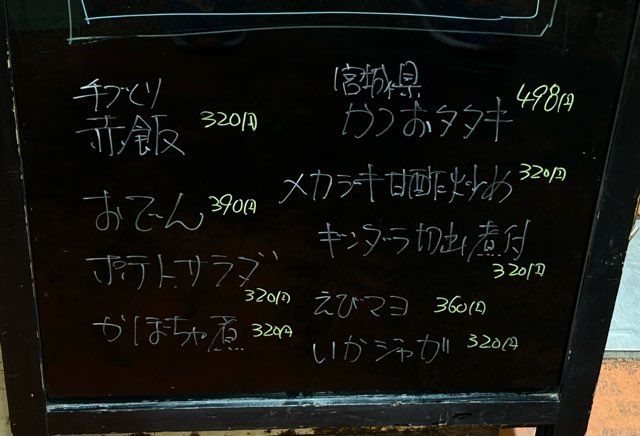 手づくり
赤飯 320円
おでん 390円
ポテトサラダ
320円
かぼちゃ煮 320円
宮城県
かつおタタキ 498円
メカジキ甘酢炒め 320円
ギンダラ切出煮付
320円
えびマヨ 360円
いかジャガ 320円